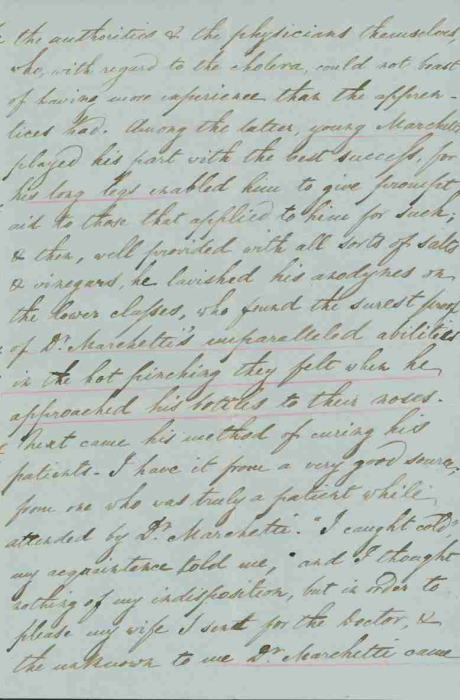 the authorities & the physicians themselves,
who, with regard to the cholera, could not boast
of having more experience than the appren-
tices had. Among the latter, young Marchetti
played his part with the best success, for
his long legs enabled him to give prompt
aid to those that applied to him for such;
& then, well provided with all sorts of salts
& vinegars, he lavished his anodynes on
the lower classes, who found the surest proof
of Dr Marchetti's unparalleled abilities
in the hot pinching they felt when he
approached his bottles to their noses.
Next came his method of curing his
patients. I have it from a very good source,
from one who was truly a patient while
attended by Dr Marchetti. "I caught cold"
my acquaintence told me, "and I thought
nothing of my indisposition, but in order to
please my wife I sent for the Doctor, &
the unknown to me Dr Marchetti came